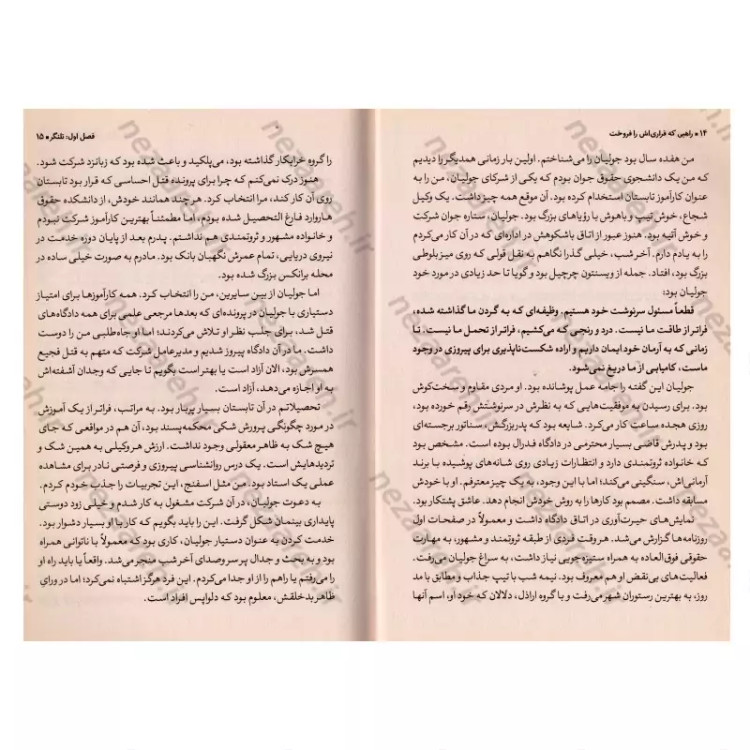 ۱۴ ● راهبی که فراری‌اش را فروخت
من هفده سال بود جولیان را می‌شناختم. اولین بار زمانی همدیگر را دیدیم
که من یک دانشجوی حقوق جوان بودم که یکی از شرکای جولیان، من را به
عنوان کارآموز تابستان استخدام کرده بود. آن موقع همه چیز داشت. یک وکیل
شجاع، خوش تیپ و باهوش با رؤیاهای بزرگ بود. جولیان، ستاره جوان شرکت
و خوش آتیه بود. هنوز عبور از اتاق باشکوهش در اداره‌ای که در آن کار می‌کردم
را به یاد دارم. آخر شب، خیلی گذرا نگاهم به نقل قولی که روی میز بلوطی
بزرگش بود، افتاد. جمله از وینستون چرچیل بود و گویا تا حد زیادی در مورد خود
جولیان بود:
قطعاً مسئول سرنوشت خود هستیم. وظیفه‌ای که به گردن ما گذاشته شده،
فراتر از طاقت ما نیست. درد و رنجی که می‌کشیم، فراتر از تحمل ما نیست. تا
زمانی که به آرمان خود ایمان داریم و اراده شکست‌ناپذیری برای پیروزی در وجود
ماست، کامیابی از ما دریغ نمی‌شود.
جولیان این گفته را جامه عمل پوشانده بود. او مردی مقاوم و سخت‌کوش
بود. برای رسیدن به موفقیت‌هایی که به نظرش در سرنوشتش رقم خورده بود،
روزی هجده ساعت کار می‌کرد. شایعه بود که پدربزرگش، سناتور برجسته‌ای
بود و پدرش قاضی بسیار محترمی در دادگاه فدرال بوده است. مشخص بود
که خانواده ثروتمندی دارد و انتظارات زیادی روی شانه‌های پوشیده با برند
آرمانی‌اش، سنگینی می‌کند؛ اما با این وجود، به یک چیز معترفم. او با خودش
مسابقه داشت. مصمم بود کارها را به روش خودش انجام دهد. عاشق پشتکار بود.
نمایش‌های حیرت‌آوری در اتاق دادگاه داشت و معمولاً در صفحات اول
روزنامه‌ها گزارش می‌شد. هر وقت فردی از طبقه ثروتمند و مشهور، به مهارت
حقوقی فوق‌العاده به همراه ستیزه‌جویی نیاز داشت، به سراغ جولیان می‌رفت.
فعالیت‌های بی‌نقص او هم معروف بود. نیمه شب با تیپ جذاب و مطابق با مد
روز، به بهترین رستوران شهر می‌رفت و یا گروه اراذل، دلالان که خود او، اسم آنها
فصل اول: تلنگر ● ۱۵
را گروه خرابکار گذاشته بود، می‌پلکید و باعث شده بود که زبانزد شرکت شود.
هنوز درک نمی‌کنم که چرا برای پرونده قتل احساسی که قرار بود تابستان
روی آن کار کند، مرا انتخاب کرد. هر چند همانند خودش، از دانشکده حقوق
هاروارد فارغ التحصیل شده بودم، اما مطمئناً بهترین کارآموز شرکت نبودم
و خانواده مشهور و ثروتمندی هم نداشتم. پدرم بعد از پایان دوره خدمت در
نیروی دریایی، تمام عمرش نگهبان بانک بود. مادرم به صورت خیلی ساده در
محله برانکس بزرگ شده بود.
اما جولیان از بین سایرین، من را انتخاب کرد. همه کارآموزها برای امتیاز
دستیاری با جولیان در پرونده‌ای که بعدها مرجعی علمی برای همه دادگاه‌های
قتل شد، برای جلب نظر او تلاش می‌کردند؛ اما او جاه‌طلبی من را دوست
داشت. ما در آن دادگاه پیروز شدیم و مدیرعامل شرکت که متهم به قتل فجیع
همسرش بود، الان آزاد است یا بهتر است بگویم تا جایی که وجدان آشفته‌اش
به او اجازه می‌دهد، آزاد است.
تحصیلاتم در آن تابستان بسیار پربار بود. به مراتب، فراتر از یک آموزش
در مورد چگونگی پرورش شکی محکمه‌پسند بود، آن هم در مواقعی که جای
هیچ شک به ظاهر معقولی وجود نداشت. ارزش هر وکیلی به همین شک و
تردیدهایش است. یک درس روانشناسی پیروزی و فرصتی نادر برای مشاهده
عملی یک استاد بود. من مثل اسفنج، این تجربیات را جذب خودم کردم.
به دعوت جولیان، در آن شرکت مشغول به کار شدم و خیلی زود دوستی
پایداری بینمان شکل گرفت. این را باید بگویم که کار با او بسیار دشوار بود.
خدمت کردن به عنوان دستیار جولیان، کاری بود که معمولاً با ناتوانی همراه
بود و به بحث و جدال پر سر و صدای آخر شب منجر می‌شد. واقعاً یا باید راه او
را می‌رفتم یا راهم را از او جدا می‌کردم. این فرد هرگز اشتباه نمی‌کرد؛ اما در ورای
ظاهر بدخلقش، معلوم بود که دلواپس افراد است.
nezaareh.ir